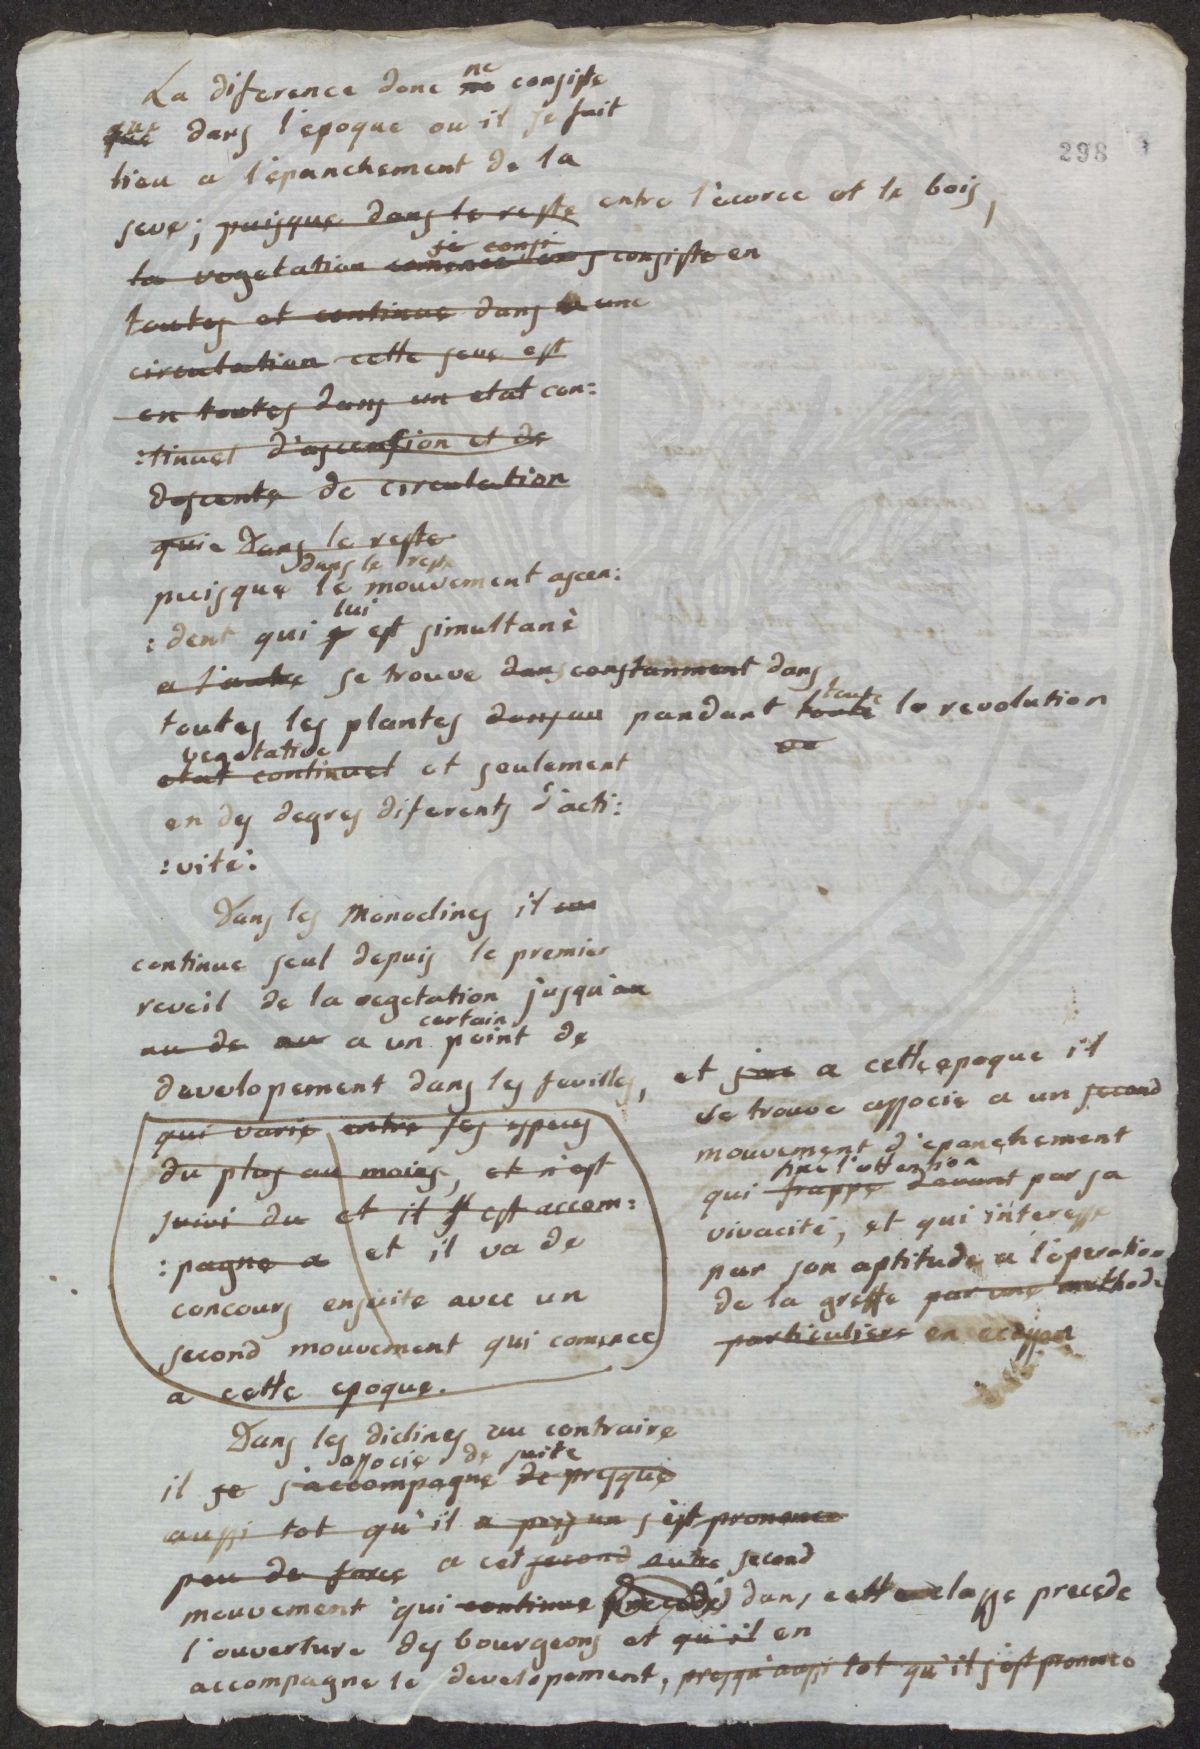 298
La diference donc ne consiste
que dans l'epoque ou il se fait
lieu a l'épanchement de la
seve; puisque dans le reste entre l'ecorce et le bois,
la vegetation comence se consi consiste en
toutes et continue dans une
circulation cette seve est
en toutes dans un etat con:
:tinuel d'ascension et de
descente de circulation
qui Dans le reste
dans le reste
puisque le mouvement ascen:
lui
:dent qui est simultané
a l'autre se trouve dans constanment dans
toute
toutes les plantes pandant toute la revolution
vegetative
etat continuel et seulement
en des degres diferents d'acti:
:vité.
Dans les Monoclines il
continue seul depuis le premier
reveil de la vegetation jusqu'au
certain
au de au a un point de
developement dans les feuilles,
qui varie entre les especes
du plus au moins, et n'est
suivi du et il est accom:
:pagne a et il va de
concours ensuite avec un
second mouvement qui comence
a cette epoque.
et a cette epoque il
se trouve associe a un second
mouvement d'epanchement
fixe l'attention
qui frappe davant par sa
vivacité, et qui interesse
par son aptitude a l'operation
de la greffe par une methode
particuliere en ecusson
Dans les diclines au contraire
associe de suite
il se s'accompagne de presque
aussi tot qu'il a s'est prononce
peu de force a cet second autre second
mouvement qui continue precede dans cette classe precede
l'ouverture des bourgeons et qu'il en
accompagne le developement, presqu'aussi tot qu'il s'est prononce